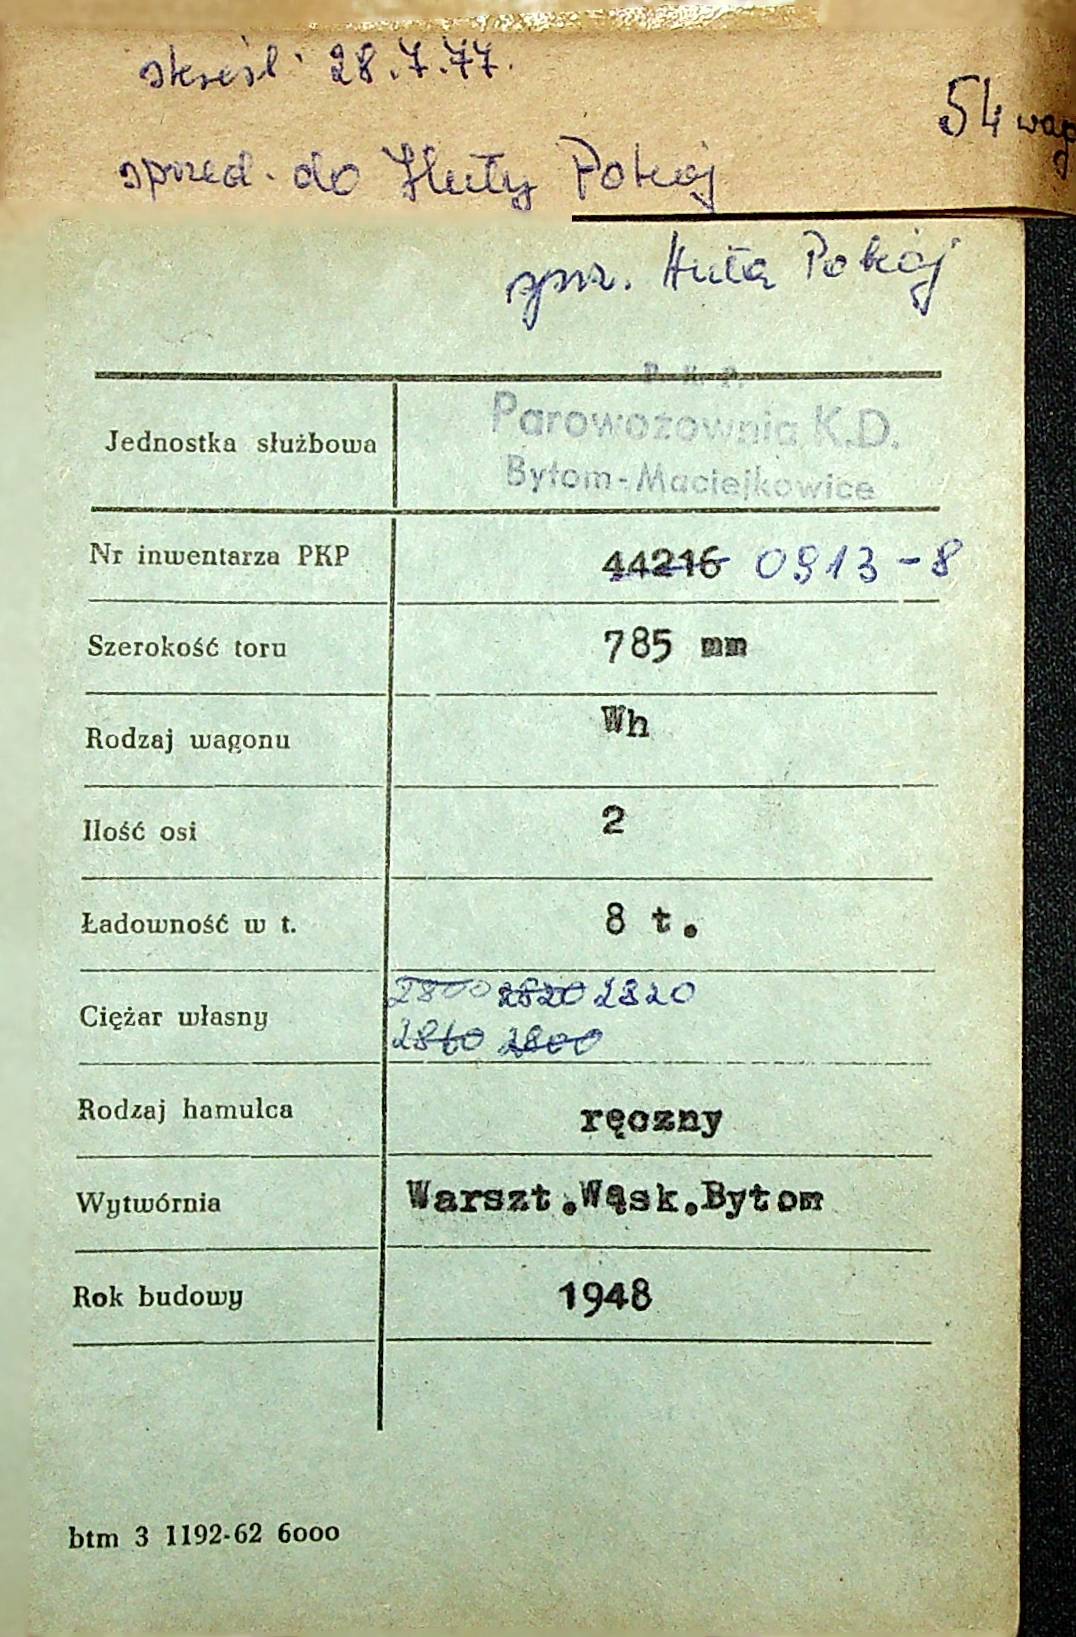 skreśl. 28.7.77.
54 wag
sprzed. do Huty Pokój
sprz. Huta Pokój
P. K. P.
Jednostka służbowa Parowozownia K.D.
Bytom-Maciejkowice
Nr inwentarza PKP 44216 0913-8
Szerokość toru 785 mm
Rodzaj wagonu Wh
Ilość osi 2
Ładowność w t. 8 t.
Ciężar własny 2800 2820 2820
2840 2800
Rodzaj hamulca ręczny
Wytwórnia Warszt.Wąsk.Bytom
Rok budowy 1948
btm 3 1192-62 6000